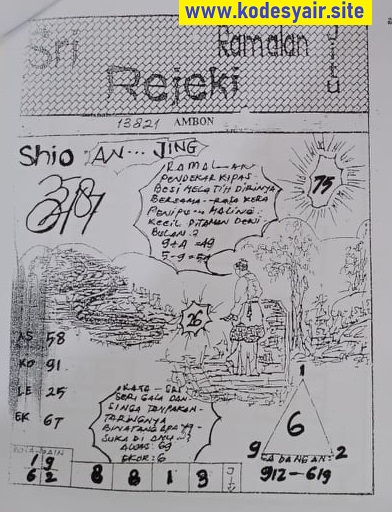 www.kodesyair.site
Sri
Ramalan
Jitu
Rejeki
13821 AMBON
Shio AN... JING
RAMALAN
PENDEKAR KIPAS
BESI MELATIH DIRINYA
BERSAMA - RAJA KERA
PENIPU ... MALING.
KECIL DITAMAN DEWI
BULAN.?
9+A=49
75
26
AS 58
KO 91
LE 25
EK 67
KATA - SRI
SERIGALA DAN
SINGA TAMPAKAN
TARINGNYA
BINATANG APA YG
SUKA DI ADU ...?
AWAS: 69
EKOR: 6
1
6
9 2
CADANGAN:
912 - 619
19
62
8 8 1 9